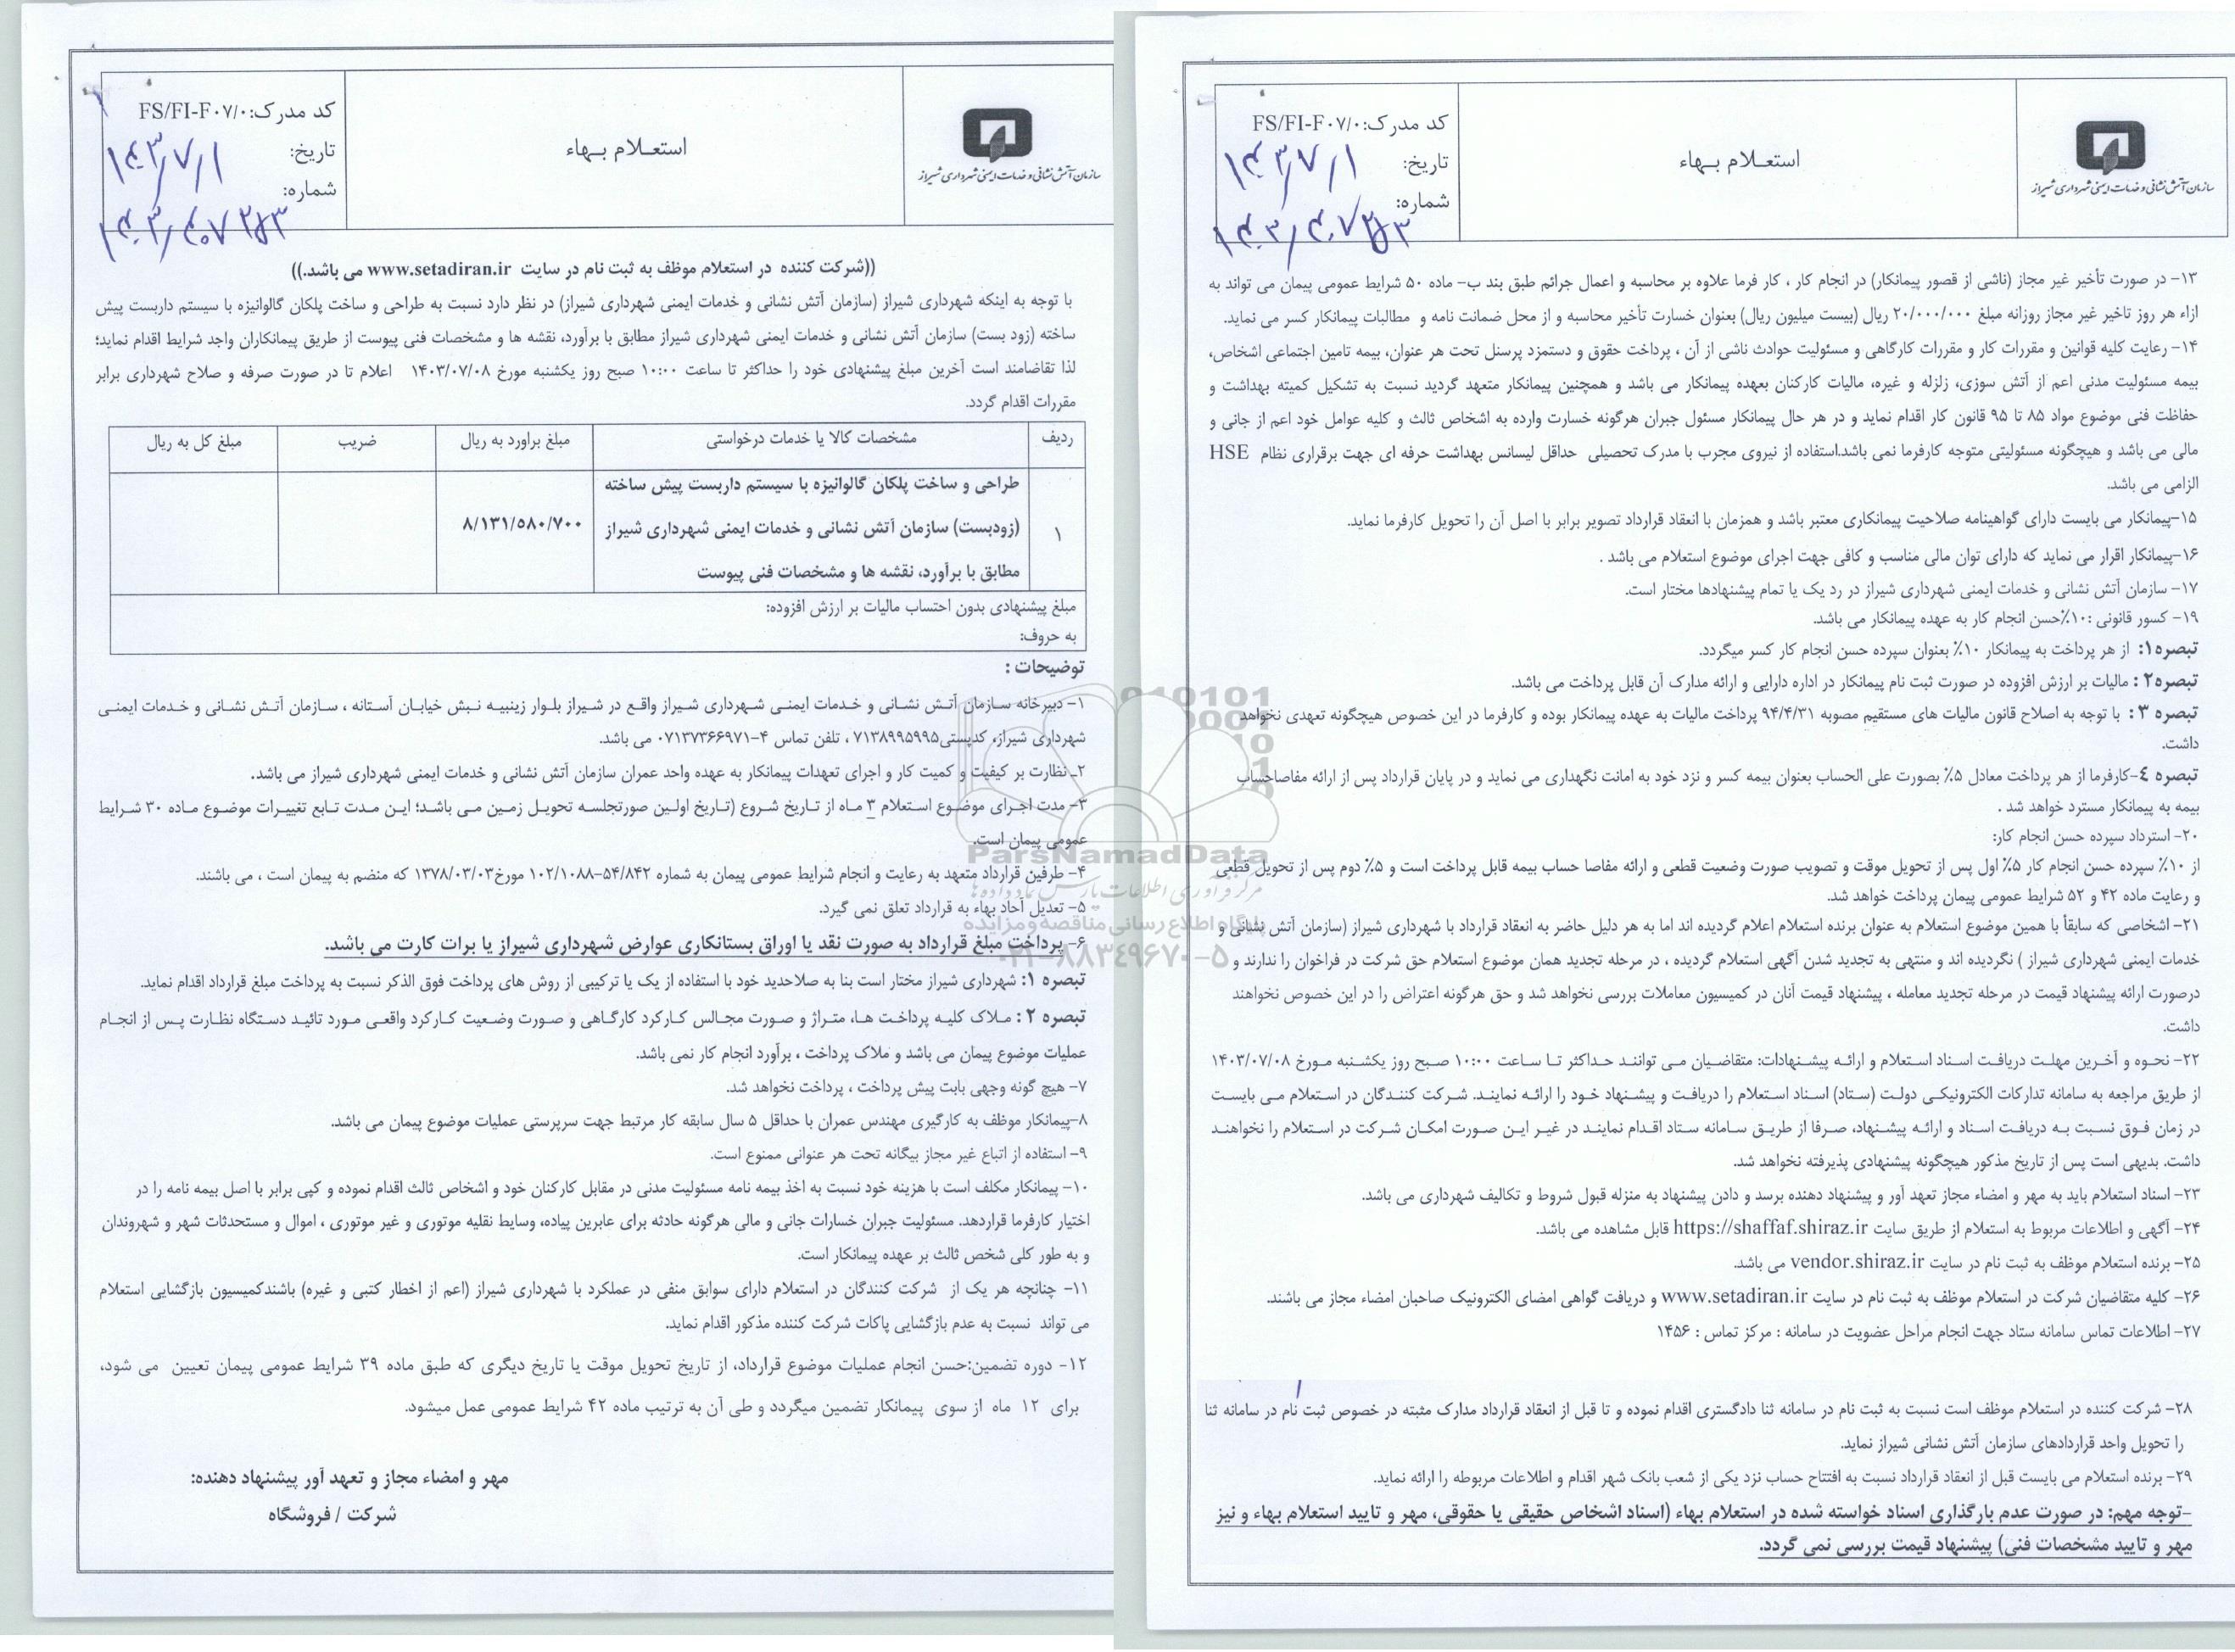 کد مدرک:FS/FI-F۰۷/۰
تاریخ: ۱۴۰۳/۷/۱
شماره:
استعلام بهاء
سازمان آتش نشانی و خدمات ایمنی شهرداری شیراز
((شرکت کننده در استعلام موظف به ثبت نام در سایت www.setadiran.ir می باشد.))
با توجه به اینکه شهرداری شیراز (سازمان آتش نشانی و خدمات ایمنی شهرداری شیراز) در نظر دارد نسبت به طراحی و ساخت پلکان گالوانیزه با سیستم داربست پیش
ساخته (زود بست) سازمان آتش نشانی و خدمات ایمنی شهرداری شیراز مطابق با برآورد، نقشه ها و مشخصات فنی پیوست از طریق پیمانکاران واجد شرایط اقدام نماید؛
لذا تقاضامند است آخرین مبلغ پیشنهادی خود را حداکثر تا ساعت ۱۰:۰۰ صبح روز یکشنبه مورخ ۱۴۰۳/۰۷/۰۸ اعلام تا در صورت صرفه و صلاح شهرداری برابر
مقررات اقدام گردد.
ردیف مشخصات کالا یا خدمات درخواستی مبلغ براورد به ریال ضریب مبلغ کل به ریال
طراحی و ساخت پلکان گالوانیزه با سیستم داربست پیش ساخته
۱ (زودبست) سازمان آتش نشانی و خدمات ایمنی شهرداری شیراز ۸/۱۳۱/۵۸۰/۷۰۰
مطابق با برآورد، نقشه ها و مشخصات فنی پیوست
مبلغ پیشنهادی بدون احتساب مالیات بر ارزش افزوده:
به حروف:
توضیحات :
۱- دبیرخانه سازمان آتش نشانی و خدمات ایمنی شهرداری شیراز واقع در شیراز بلوار زینبیه نبش خیابان آستانه ، سازمان آتش نشانی و خدمات ایمنی
شهرداری شیراز، کدپستی۷۱۳۸۹۹۵۹۹۵ ، تلفن تماس ۴-۰۷۱۳۷۳۶۶۹۷۱ می باشد.
۲- نظارت بر کیفیت و کمیت کار و اجرای تعهدات پیمانکار به عهده واحد عمران سازمان آتش نشانی و خدمات ایمنی شهرداری شیراز می باشد.
۳- مدت اجرای موضوع استعلام ۳ ماه از تاریخ شروع (تاریخ اولین صورتجلسه تحویل زمین می باشد؛ این مدت تابع تغییرات موضوع ماده ۳۰ شرایط
عمومی پیمان است.
۴- طرفین قرارداد متعهد به رعایت و انجام شرایط عمومی پیمان به شماره ۵۴/۸۴۲-۱۰۲/۱۰۸۸ مورخ۱۳۷۸/۰۳/۰۳ که منضم به پیمان است ، می باشند.
۵- تعدیل آحاد بهاء به قرارداد تعلق نمی گیرد.
۶- پرداخت مبلغ قرارداد به صورت نقد یا اوراق بستانکاری عوارض شهرداری شیراز یا برات کارت می باشد.
تبصره ۱: شهرداری شیراز مختار است بنا به صلاحدید خود با استفاده از یک یا ترکیبی از روش های پرداخت فوق الذکر نسبت به پرداخت مبلغ قرارداد اقدام نماید.
تبصره ۲ : ملاک کلیه پرداخت ها، متراژ و صورت مجالس کارکرد کارگاهی و صورت وضعیت کارکرد واقعی مورد تائید دستگاه نظارت پس از انجام
عملیات موضوع پیمان می باشد و ملاک پرداخت ، برآورد انجام کار نمی باشد.
۷- هیچ گونه وجهی بابت پیش پرداخت ، پرداخت نخواهد شد.
۸-پیمانکار موظف به کارگیری مهندس عمران با حداقل ۵ سال سابقه کار مرتبط جهت سرپرستی عملیات موضوع پیمان می باشد.
۹- استفاده از اتباع غیر مجاز بیگانه تحت هر عنوانی ممنوع است.
۱۰- پیمانکار مکلف است با هزینه خود نسبت به اخذ بیمه نامه مسئولیت مدنی در مقابل کارکنان خود و اشخاص ثالث اقدام نموده و کپی برابر با اصل بیمه نامه را در
اختیار کارفرما قراردهد. مسئولیت جبران خسارات جانی و مالی هرگونه حادثه برای عابرین پیاده، وسایط نقلیه موتوری و غیر موتوری ، اموال و مستحدثات شهر و شهروندان
و به طور کلی شخص ثالث بر عهده پیمانکار است.
۱۱- چنانچه هر یک از شرکت کنندگان در استعلام دارای سوابق منفی در عملکرد با شهرداری شیراز (اعم از اخطار کتبی و غیره) باشندکمیسیون بازگشایی استعلام
می تواند نسبت به عدم بازگشایی پاکات شرکت کننده مذکور اقدام نماید.
۱۲- دوره تضمین:حسن انجام عملیات موضوع قرارداد، از تاریخ تحویل موقت یا تاریخ دیگری که طبق ماده ۳۹ شرایط عمومی پیمان تعیین می شود،
برای ۱۲ ماه از سوی پیمانکار تضمین میگردد و طی آن به ترتیب ماده ۴۲ شرایط عمومی عمل میشود.
مهر و امضاء مجاز و تعهد آور پیشنهاد دهنده:
شرکت / فروشگاه
کد مدرک:FS/FI-F۰۷/۰
تاریخ: ۱۴۰۳/۷/۱
شماره:
استعلام بهاء
سازمان آتش نشانی و خدمات ایمنی شهرداری شیراز
۱۳- در صورت تأخیر غیر مجاز (ناشی از قصور پیمانکار) در انجام کار ، کار فرما علاوه بر محاسبه و اعمال جرائم طبق بند ب- ماده ۵۰ شرایط عمومی پیمان می تواند به
ازاء هر روز تاخیر غیر مجاز روزانه مبلغ ۲۰/۰۰۰/۰۰۰ ریال (بیست میلیون ریال) بعنوان خسارت تأخیر محاسبه و از محل ضمانت نامه و مطالبات پیمانکار کسر می نماید.
۱۴- رعایت کلیه قوانین و مقررات کار و مقررات کارگاهی و مسئولیت حوادث ناشی از آن ، پرداخت حقوق و دستمزد پرسنل تحت هر عنوان، بیمه تامین اجتماعی اشخاص،
بیمه مسئولیت مدنی اعم از آتش سوزی، زلزله و غیره، مالیات کارکنان بعهده پیمانکار می باشد و همچنین پیمانکار متعهد گردید نسبت به تشکیل کمیته بهداشت و
حفاظت فنی موضوع مواد ۸۵ تا ۹۵ قانون کار اقدام نماید و در هر حال پیمانکار مسئول جبران هرگونه خسارت وارده به اشخاص ثالث و کلیه عوامل خود اعم از جانی و
مالی می باشد و هیچگونه مسئولیتی متوجه کارفرما نمی باشد.استفاده از نیروی مجرب با مدرک تحصیلی حداقل لیسانس بهداشت حرفه ای جهت برقراری نظام HSE
الزامی می باشد.
۱۵-پیمانکار می بایست دارای گواهینامه صلاحیت پیمانکاری معتبر باشد و همزمان با انعقاد قرارداد تصویر برابر با اصل آن را تحویل کارفرما نماید.
۱۶-پیمانکار اقرار می نماید که دارای توان مالی مناسب و کافی جهت اجرای موضوع استعلام می باشد .
۱۷- سازمان آتش نشانی و خدمات ایمنی شهرداری شیراز در رد یک یا تمام پیشنهادها مختار است.
۱۹- کسور قانونی :۱۰٪حسن انجام کار به عهده پیمانکار می باشد.
تبصره۱: از هر پرداخت به پیمانکار ۱۰٪ بعنوان سپرده حسن انجام کار کسر میگردد.
تبصره۲ : مالیات بر ارزش افزوده در صورت ثبت نام پیمانکار در اداره دارایی و ارائه مدارک آن قابل پرداخت می باشد.
تبصره ۳ : با توجه به اصلاح قانون مالیات های مستقیم مصوبه ۹۴/۴/۳۱ پرداخت مالیات به عهده پیمانکار بوده و کارفرما در این خصوص هیچگونه تعهدی نخواهد
داشت.
تبصره ۴-کارفرما از هر پرداخت معادل ۵٪ بصورت علی الحساب بعنوان بیمه کسر و نزد خود به امانت نگهداری می نماید و در پایان قرارداد پس از ارائه مفاصاحساب
بیمه به پیمانکار مسترد خواهد شد .
۲۰- استرداد سپرده حسن انجام کار:
از ۱۰٪ سپرده حسن انجام کار ۵٪ اول پس از تحویل موقت و تصویب صورت وضعیت قطعی و ارائه مفاصا حساب بیمه قابل پرداخت است و ۵٪ دوم پس از تحویل قطعی
و رعایت ماده ۴۲ و ۵۲ شرایط عمومی پیمان پرداخت خواهد شد.
۲۱- اشخاصی که سابقاً با همین موضوع استعلام به عنوان برنده استعلام اعلام گردیده اند اما به هر دلیل حاضر به انعقاد قرارداد با شهرداری شیراز (سازمان آتش نشانی و
خدمات ایمنی شهرداری شیراز ) نگردیده اند و منتهی به تجدید شدن آگهی استعلام گردیده ، در مرحله تجدید همان موضوع استعلام حق شرکت در فراخوان را ندارند و
درصورت ارائه پیشنهاد قیمت در مرحله تجدید معامله ، پیشنهاد قیمت آنان در کمیسیون معاملات بررسی نخواهد شد و حق هرگونه اعتراض را در این خصوص نخواهند
داشت.
۲۲- نحوه و آخرین مهلت دریافت اسناد استعلام و ارائه پیشنهادات: متقاضیان می توانند حداکثر تا ساعت ۱۰:۰۰ صبح روز یکشنبه مورخ ۱۴۰۳/۰۷/۰۸
از طریق مراجعه به سامانه تدارکات الکترونیکی دولت (ستاد) اسناد استعلام را دریافت و پیشنهاد خود را ارائه نمایند. شرکت کنندگان در استعلام می بایست
در زمان فوق نسبت به دریافت اسناد و ارائه پیشنهاد، صرفا از طریق سامانه ستاد اقدام نمایند در غیر این صورت امکان شرکت در استعلام را نخواهند
داشت. بدیهی است پس از تاریخ مذکور هیچگونه پیشنهادی پذیرفته نخواهد شد.
۲۳- اسناد استعلام باید به مهر و امضاء مجاز تعهد آور و پیشنهاد دهنده برسد و دادن پیشنهاد به منزله قبول شروط و تکالیف شهرداری می باشد.
۲۴- آگهی و اطلاعات مربوط به استعلام از طریق سایت https://shaffaf.shiraz.ir قابل مشاهده می باشد.
۲۵- برنده استعلام موظف به ثبت نام در سایت vendor.shiraz.ir می باشد.
۲۶- کلیه متقاضیان شرکت در استعلام موظف به ثبت نام در سایت www.setadiran.ir و دریافت گواهی امضای الکترونیک صاحبان امضاء مجاز می باشند.
۲۷- اطلاعات تماس سامانه ستاد جهت انجام مراحل عضویت در سامانه : مرکز تماس : ۱۴۵۶
۲۸- شرکت کننده در استعلام موظف است نسبت به ثبت نام در سامانه ثنا دادگستری اقدام نموده و تا قبل از انعقاد قرارداد مدارک مثبته در خصوص ثبت نام در سامانه ثنا
را تحویل واحد قراردادهای سازمان آتش نشانی شیراز نماید.
۲۹- برنده استعلام می بایست قبل از انعقاد قرارداد نسبت به افتتاح حساب نزد یکی از شعب بانک شهر اقدام و اطلاعات مربوطه را ارائه نماید.
-توجه مهم: در صورت عدم بارگذاری اسناد خواسته شده در استعلام بهاء (اسناد اشخاص حقیقی یا حقوقی، مهر و تایید استعلام بهاء و نیز
مهر و تایید مشخصات فنی) پیشنهاد قیمت بررسی نمی گردد.
ParsNamadData
پایگاه اطلاع رسانی مناقصه و مزایده
۰۲۱-۸۸۳۴۹۶۷۰-۵